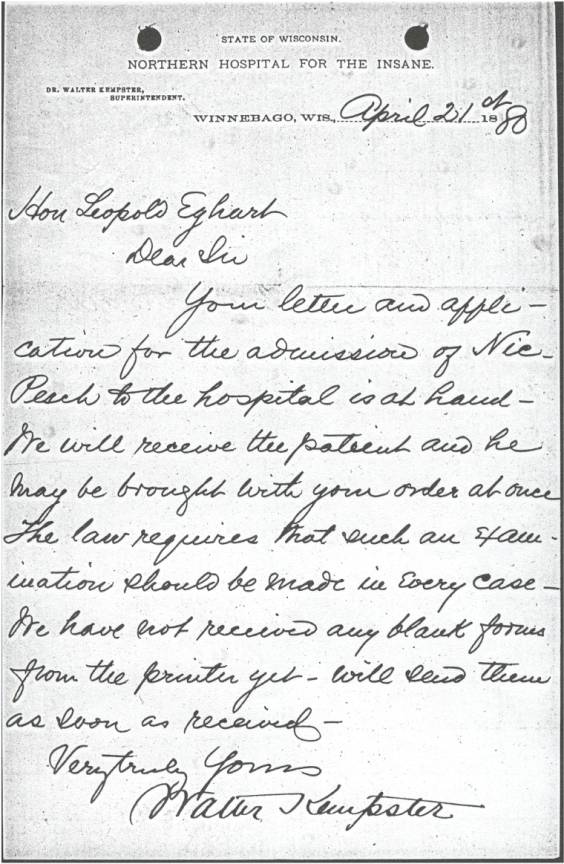 STATE OF WISCONSIN.
NORTHERN HOSPITAL FOR THE INSANE.
DR. WALTER KEMPSTER,
SUPERINTENDENT.
WINNEBAGO, WIS., April 21st 1880
Hon Leopold Eghart
Dear Sir
Your letter and appli-
cation for the admission of Nic-
Pesch to the hospital is at hand-
We will receive the patient and he
may be brought with your order at once
The law requires that such an exam-
ination should be made in every case-
We have not received any blank forms
from the printer yet - will send them
as soon as received-
Very truly Yours
Walter Kempster